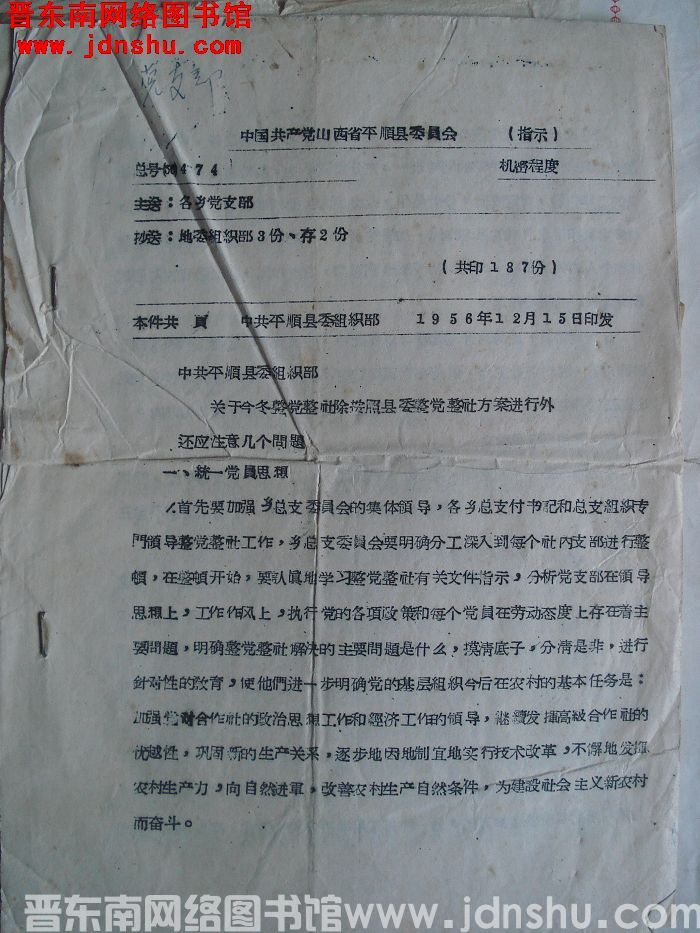 晋东南网络图书馆
www.jdnshu.com
党支部
中国共产党山西省平順县委員会 (指示)
总号(56)474 机密程度
主送：各乡党支部
抄送：地委組織部3份、存2份
(共印187份)
本件共 頁 中共平順县委組織部 1956年12月15日印发
中共平順县委組織部
关于今冬整党整社除按照县委整党整社方案进行外
还应注意几个問題
一、統一党員思想
1.首先要加强乡总支委員会的集体領导，各乡总支付书記和总支組織专
門領导整党整社工作，乡总支委員会要明确分工深入到每个社內支部进行整
頓，在整頓开始，要认真地学习整党整社有关文件指示，分析党支部在領导
思想上，工作作风上，执行党的各項政策和每个党員在劳动态度上存在着主
要問題，明确整党整社解决的主要問題是什么，摸清底子，分清是非，进行
針对性的教育，使他們进一步明确党的基层組織今后在农村的基本任务是：
加强党对合作社的政治思想工作和經济工作的領导，継續发揮高級合作社的
优越性，巩固新的生产关系，逐步地因地制宜地实行技术改革，不懈地发揮
农村生产力，向自然进軍，改善农村生产自然条件，为建設社会主义新农村
而奋斗。
晋东南网络图书馆www.jdnshu.com